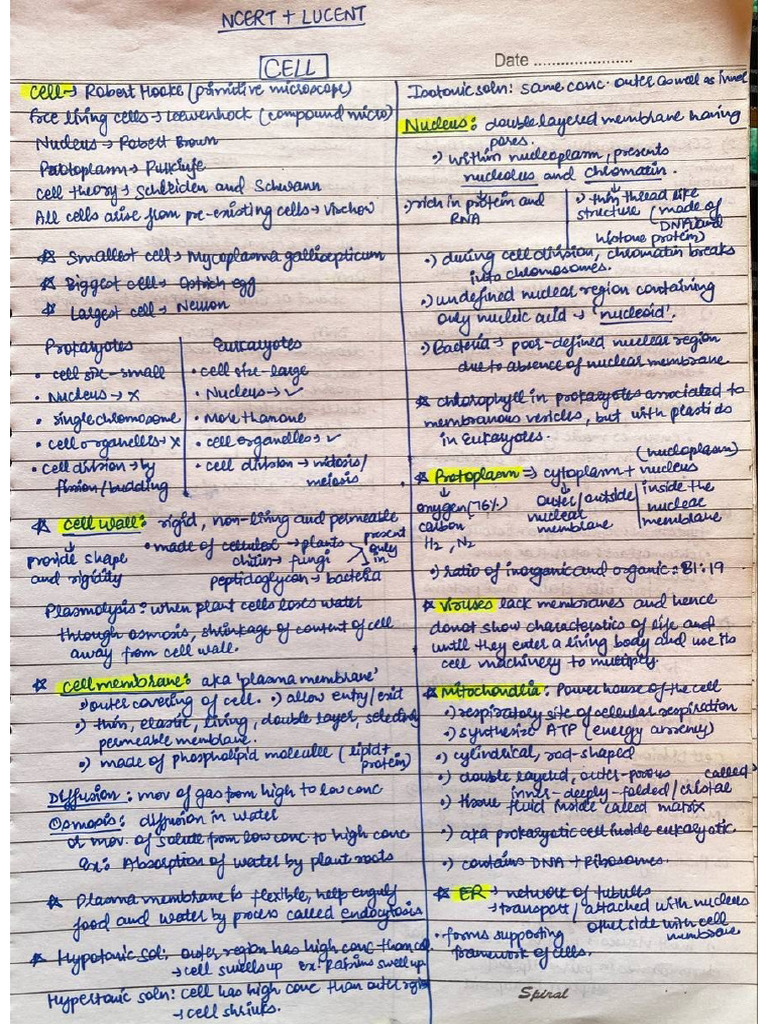 NCERT + LUCENT
CELL
Date
Cell → Robert Hooke (primitive microscope)
free living cells → Leewenhock (compound micro)
Nucleus → Robert Brown
Protoplasm → Purkinje
cell theory → Schleiden and Schwann
All cells arise from pre-existing cells → Virchow
☆ Smallest cell → Mycoplasma gallisepticum
☆ Biggest cell → Ostrich egg
☆ Largest cell → Neuron
Prokaryotes
• cell size - small
• Nucleus → x
• single chromosome
• cell organelles → x
• cell division → by
fission/budding
Eukaryotes
• cell size - large
• Nucleus → ✓
• More than one
• cell organelles → ✓
• cell division → mitosis/
meiosis
☆ cell wall: rigid, non-living and permeable
↓
provide shape
and rigidity
• made of cellulose → plants
chitin → fungi
peptidoglycan → bacteria
present
only
in
Plasmolysis: when plant cells loses water
through osmosis, shrinkage of content of cell
away from cell wall.
☆ cell membrane: aka 'plasma membrane'
•) outer covering of cell. •) allow entry/exit
•) thin, elastic, living, double layer, selectively
permeable membrane.
•) made of phospholipid molecule (lipid+
protein)
Diffusion: mov of gas from high to low conc
Osmosis: diffusion in water
or mov. of solute from low conc to high conc
Ex: Absorption of water by plant roots
☆ Plasma membrane is flexible, help engulf
food and water by process called endocytosis
☆ Hypotonic sol: outer region has high conc than cell
→ cell swells up Ex: Raisins swell up
Hypertonic soln: cell has high conc than outer region
→ cell shrinks.
Isotonic soln: same conc outer as well as inner
Nucleus: double layered membrane having
pores.
•) within nucleoplasm, presents
nucleolus and chromatin.
•) rich in protein and
RNA
•) thin thread like
structure (made of
DNA and
histone protein)
•) during cell division, chromatin breaks
into chromosomes.
•) undefined nuclear region containing
only nucleic acid → 'nucleoid'.
•) Bacteria → poor-defined nuclear region
due to absence of nuclear membrane.
☆ chlorophyll in prokaryotes associated to
membranous vesicles, but with plastids
in Eukaryotes.
(nucleoplasm)
☆ Protoplasm ⇒ cytoplasm + nucleus
↓
oxygen (76%)
carbon
H2, N2
↓
outer/outside
nuclear
membrane
inside the
nuclear
membrane
•) ratio of inorganic and organic: 81:19
☆ Viruses lack membranes and hence
donot show characteristics of life and
until they enter a living body and use its
cell machinery to multiply.
☆ Mitochondria: Power house of the cell
•) respiratory site of cellular respiration
•) synthesize ATP (energy currency)
•) cylindrical, rod-shaped
•) double layered, outer-porous called
inner-deeply-folded/cristae
•) tissue fluid inside called matrix
•) aka prokaryotic cell inside eukaryotic.
•) contains DNA + Ribosomes.
☆ ER → network of tubules
→ transport/attached with nucleus
other side with cell
membrane
• forms supporting
framework of cells.
Spiral